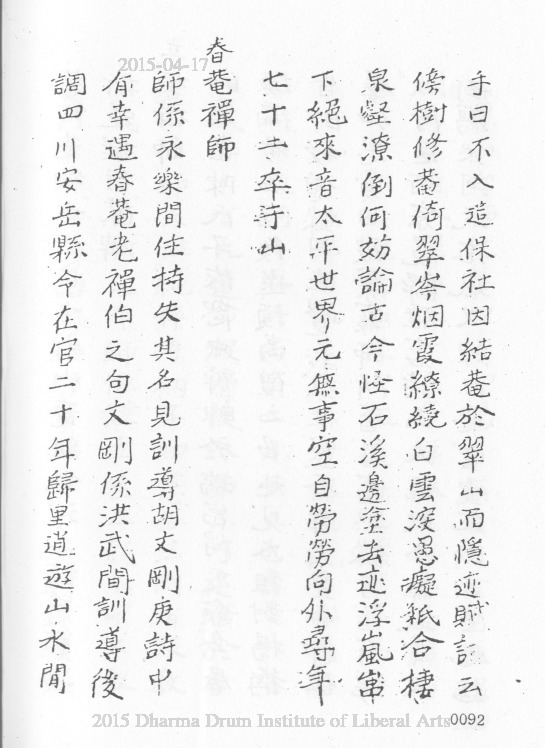 手曰不入這保社因結菴於翠山而隱迹賦詩云
傍樹修菴倚翠岑烟霞繚繞白雲深愚癡秖合棲
泉壑潦倒何妨論古今怪石溪邊塗去迹浮嵐
下絕來音太平世界元無事空自勞勞向外尋年
七十六卒于山
春菴禪師
師係永樂間住持失其名見訓導胡文剛庚詩中
有幸遇春菴老禪伯之句文剛係洪武間訓導後
調四川安岳縣令在官二十年歸里逍遊山水間
2015-04-17
2015 Dharma Drum Institute of Liberal Arts
0092